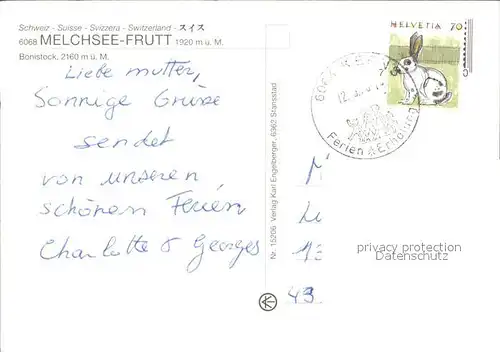 Schweiz - Suisse - Svizzera - Switzerland - スイス
6068 MELCHSEE-FRUTT 1920 m ü. M.
Bonistock, 2160 m ü. M.
Liebe mutter,
Sonnige Grüsse
sendet
von unseren
schönen Ferien
Charlotte & Georges
Nr. 15206 Verlag Karl Engelberger, 6362 Stansstad
HELVETIA 70
Ferien Erholung
49
privacy protection
Datenschutz